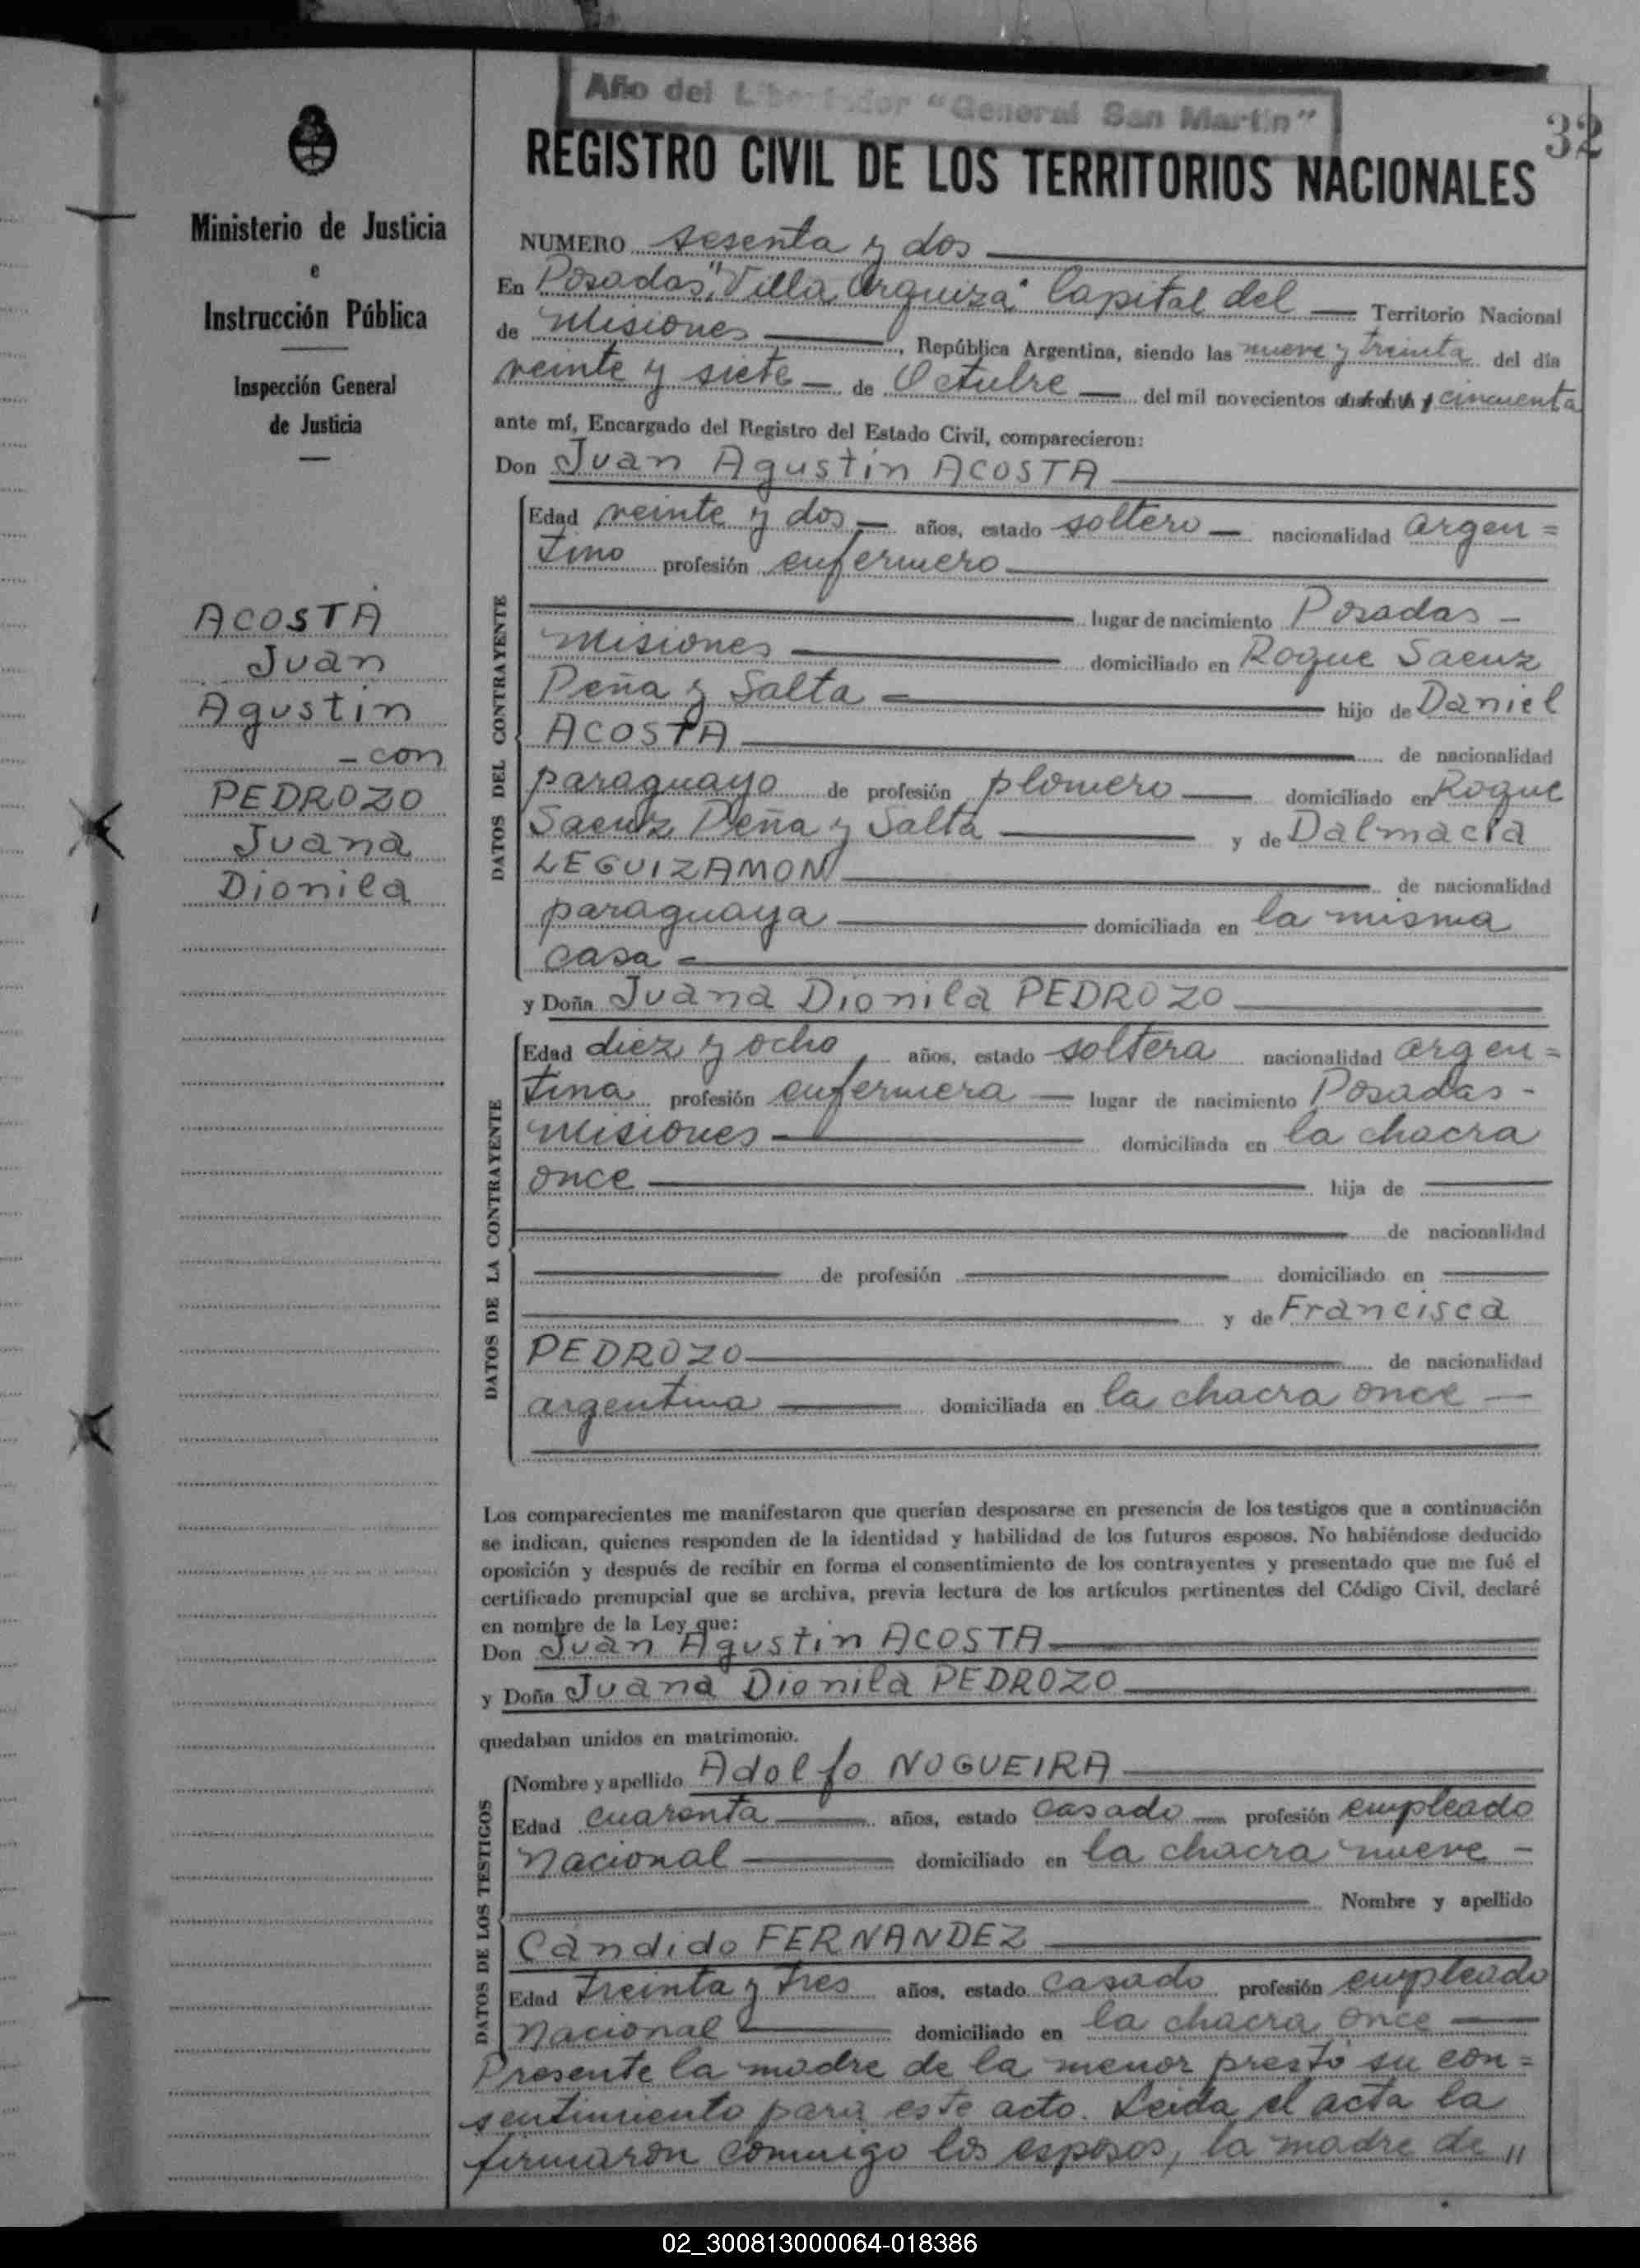 Año del Libertador "General San Martin"
32
REGISTRO CIVIL DE LOS TERRITORIOS NACIONALES
Ministerio de Justicia
e
Instrucción Pública
Inspección General
de Justicia
ACOSTA
Juan
Agustin
- con
PEDROZO
Juana
Dionila
NUMERO sesenta y dos
En Posadas "Villa Urquiza" Capital del Territorio Nacional
de Misiones, República Argentina, siendo las nueve y treinta del día
veinte y siete de Octubre del mil novecientos cincuenta
ante mí, Encargado del Registro del Estado Civil, comparecieron:
Don Juan Agustin ACOSTA
DATOS DEL CONTRAYENTE
Edad veinte y dos años, estado soltero nacionalidad argen=
tino profesión enfermero
lugar de nacimiento Posadas -
Misiones domiciliado en Roque Saenz
Peña y Salta hijo de Daniel
ACOSTA de nacionalidad
paraguayo de profesión plomero domiciliado en Roque
Saenz Peña y Salta y de Dalmacia
LEGUIZAMON de nacionalidad
paraguaya domiciliada en la misma
casa
y Doña Juana Dionila PEDROZO
DATOS DE LA CONTRAYENTE
Edad diez y ocho, años, estado soltera nacionalidad argen=
tina profesión enfermera lugar de nacimiento Posadas -
Misiones domiciliada en la chacra
once hija de
de nacionalidad
de profesión domiciliado en
y de Francisca
PEDROZO de nacionalidad
argentina domiciliada en la chacra once
Los comparecientes me manifestaron que querían desposarse en presencia de los testigos que a continuación
se indican, quienes responden de la identidad y habilidad de los futuros esposos. No habiéndose deducido
oposición y después de recibir en forma el consentimiento de los contrayentes y presentado que me fué el
certificado prenupcial que se archiva, previa lectura de los artículos pertinentes del Código Civil, declaré
en nombre de la Ley que:
Don Juan Agustin ACOSTA
y Doña Juana Dionila PEDROZO
quedaban unidos en matrimonio.
DATOS DE LOS TESTIGOS
Nombre y apellido Adolfo NOGUEIRA
Edad cuarenta años, estado casado profesión empleado
Nacional domiciliado en la chacra nueve -
Nombre y apellido
Cándido FERNANDEZ
Edad treinta y tres años, estado casado profesión empleado
Nacional domiciliado en la chacra once
Presente la madre de la menor prestó su con=
sentimiento para este acto. Leida el acta la
firmaron conmigo los esposos, la madre de "
02_300813000064-018386